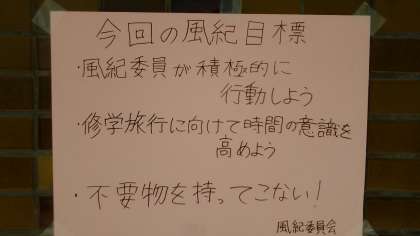 今回の風紀目標
・風紀委員が積極的に
行動しよう
・修学旅行に向けて時間の意識を
高めよう
・不要物を持ってこない!
風紀委員会